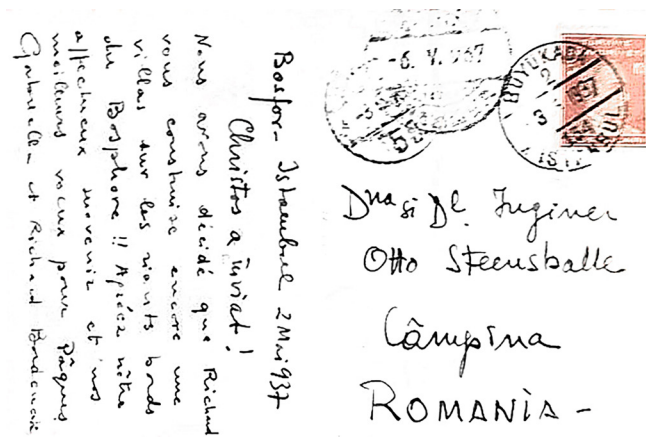 Bosfor - Istambul 2 Mai 937
Christos a înviat!
Nous avons décidé que Richard
vous construise encore une
villa sur les riants bords
du Bosphore!! Agréez nôtre
affectueux souvenir et nos
meilleurs vœux pour Pâques
Gabrielle et Richard
-6. V. 937
BÜYÜKADA
2
3
1937
ISTANBUL
Dna si Dl. Inginer
Otto Steensballe
Câmpina
ROMANIA -